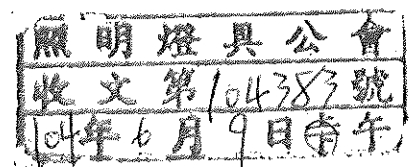 照明燈具公會
收文第104383號
104年6月9日 午